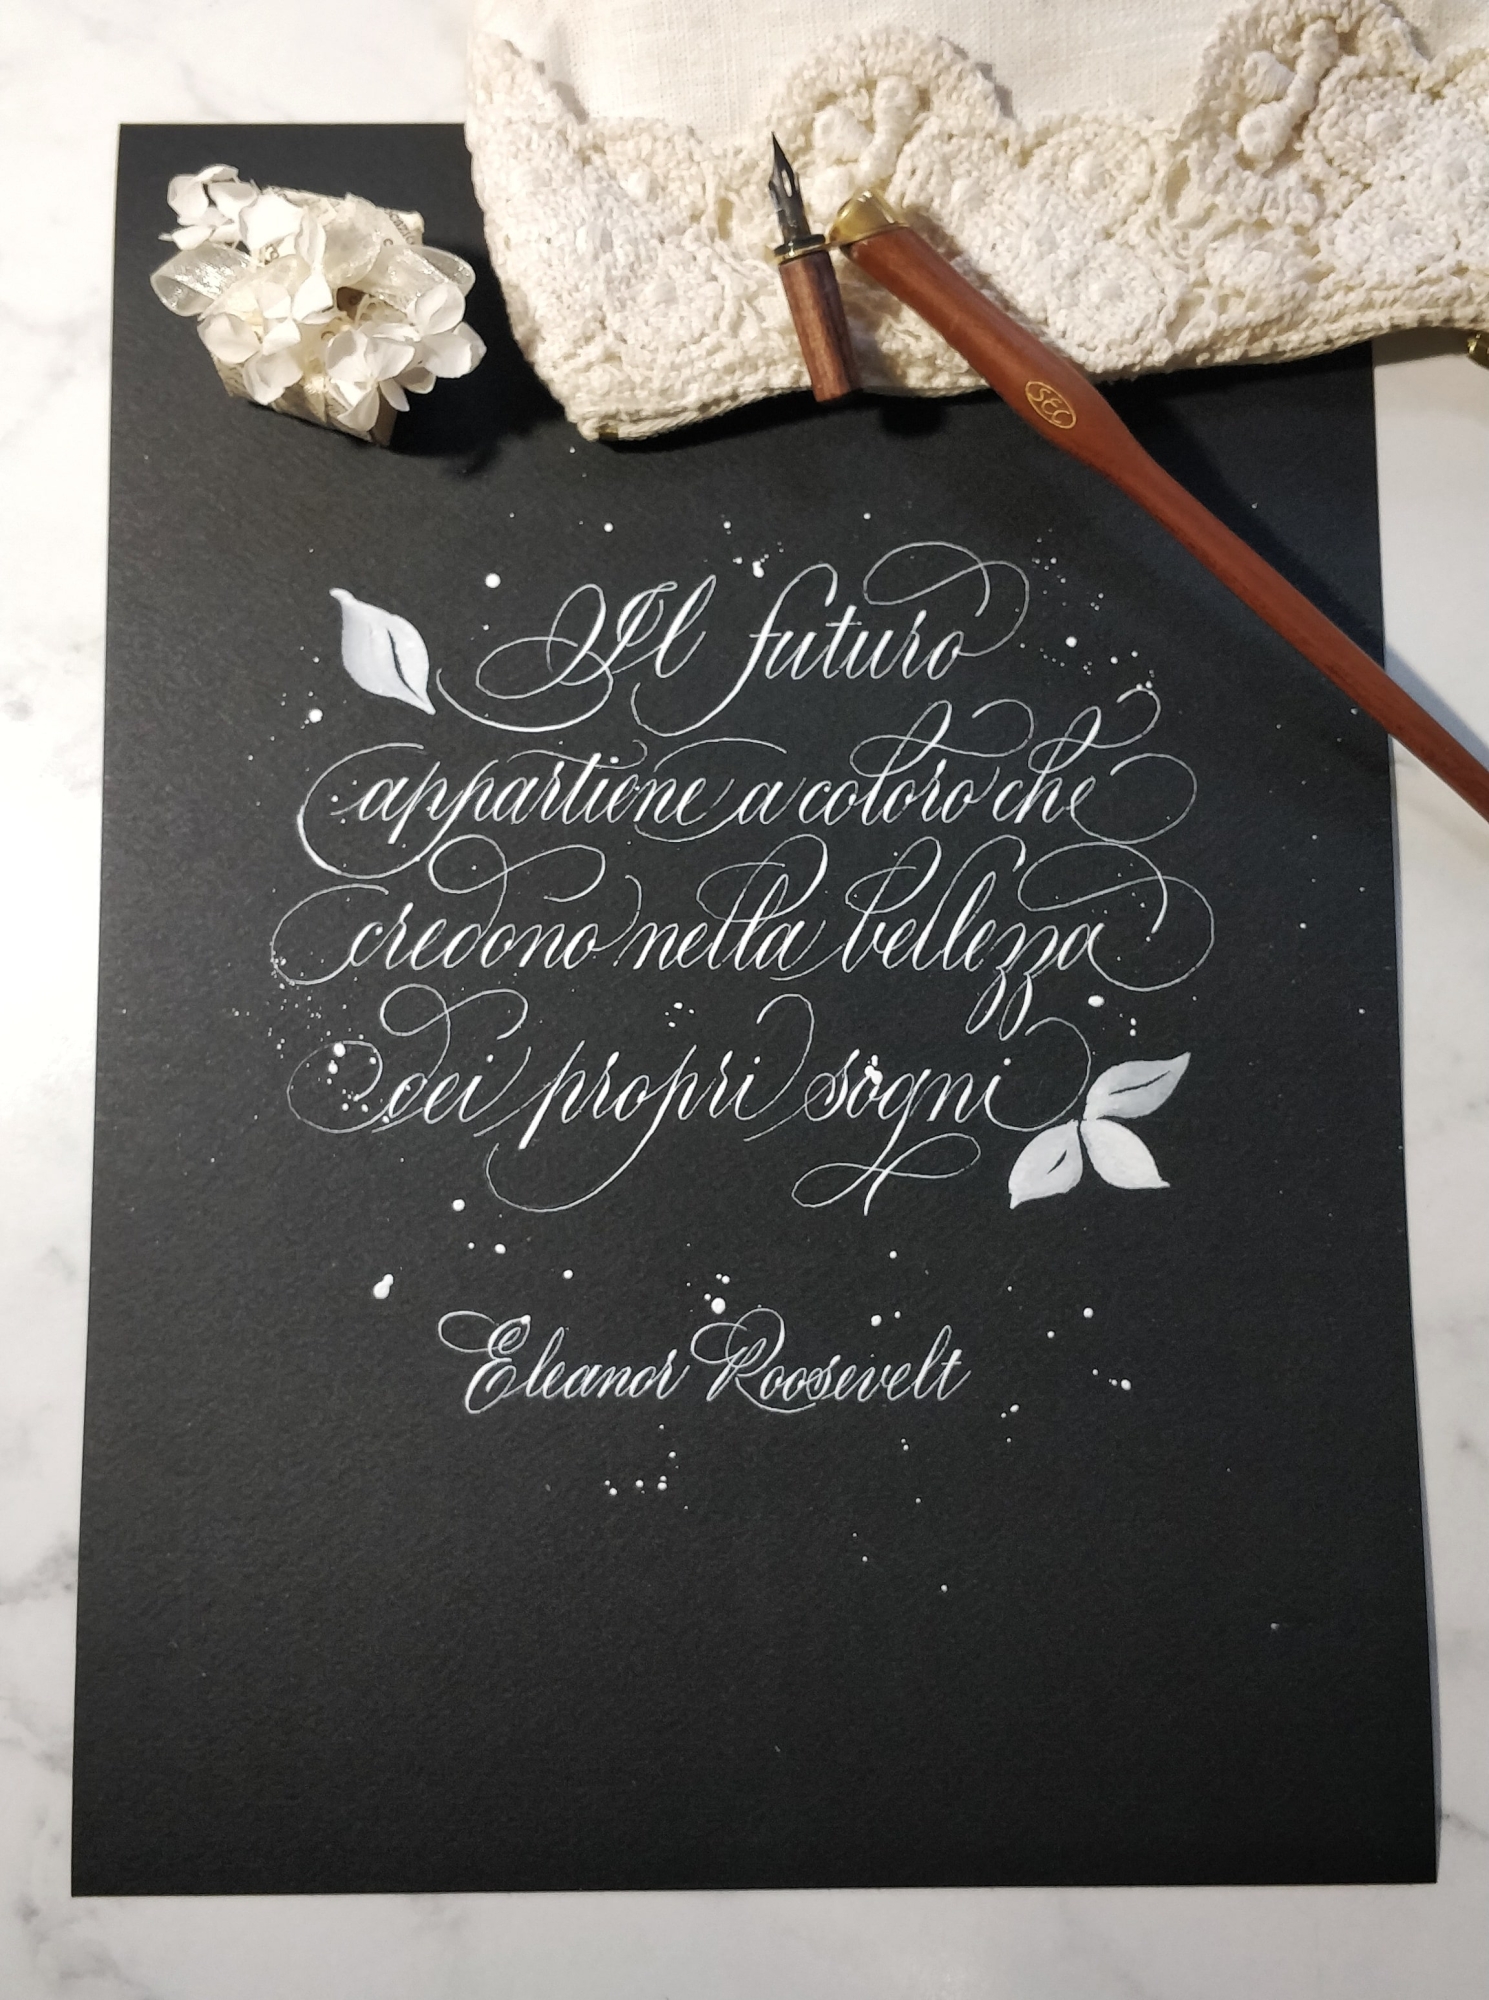 SEC
Il futuro
appartiene a coloro che
credono nella bellezza
dei propri sogni
Eleanor Roosevelt